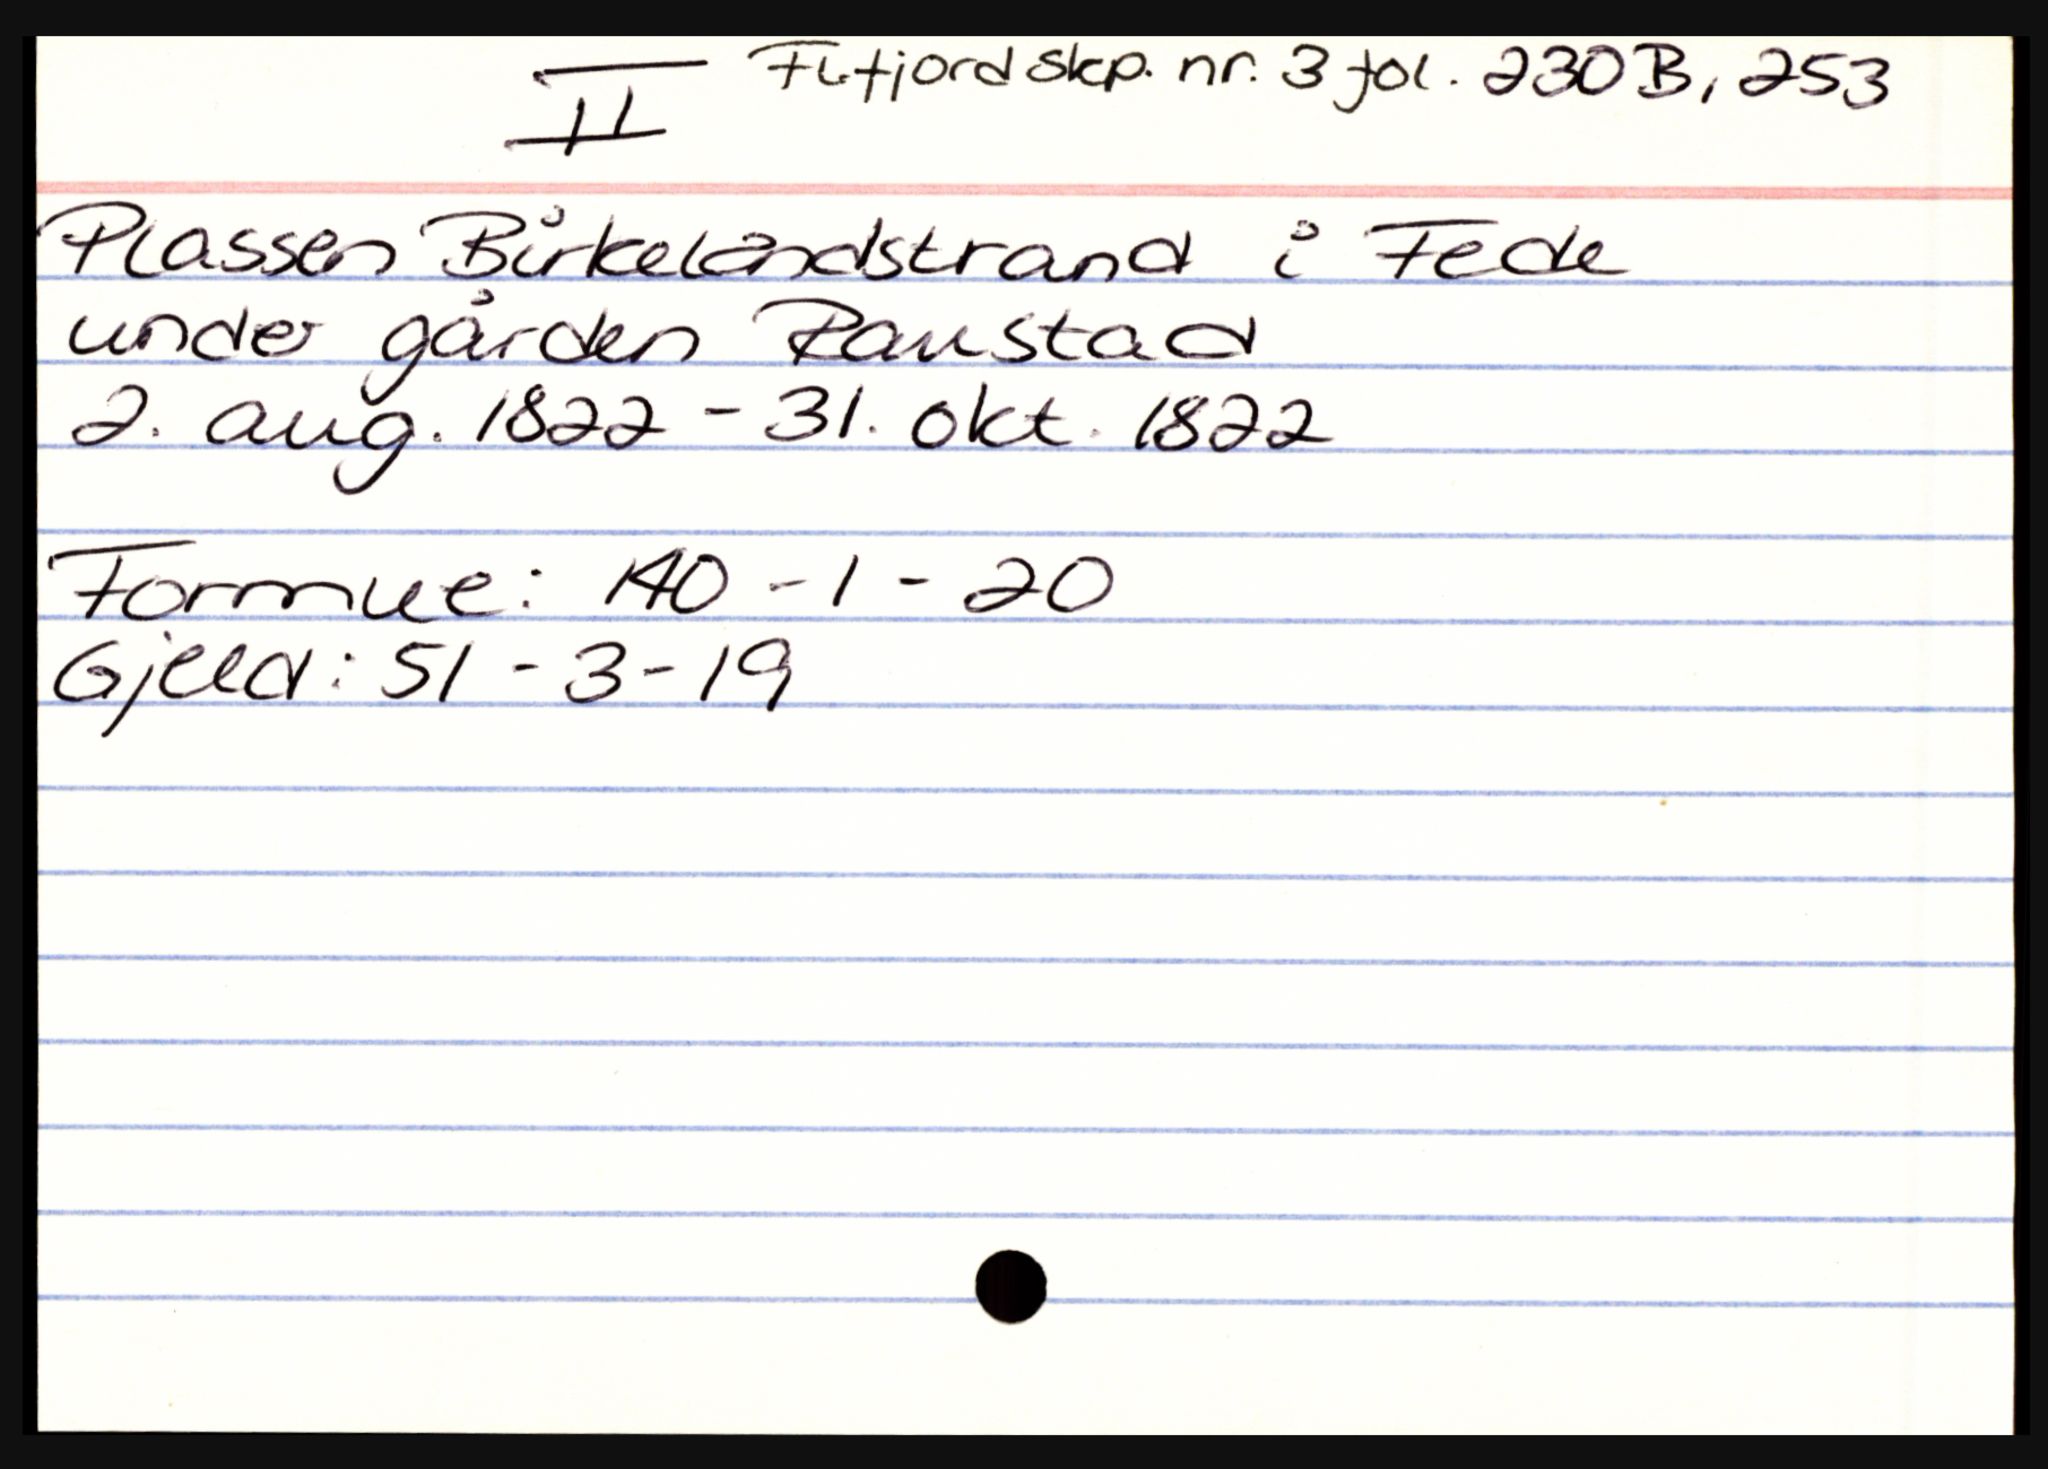 II Fl.fjord skp. nr. 3 fol. 230B, 253
Plassen Birkelandstrand i Fede
under gården Raustad
2. aug. 1822 - 31. okt. 1822
Formue: 140 - 1 - 20
Gjeld: 51 - 3 - 19